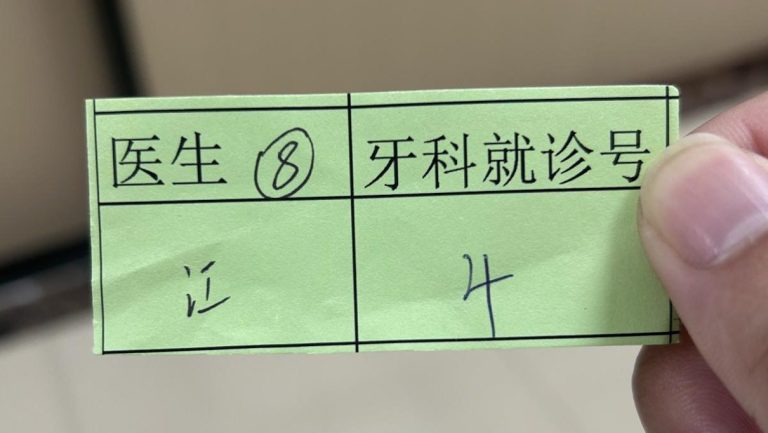 医生 ⑧ 牙科就诊号
江 4